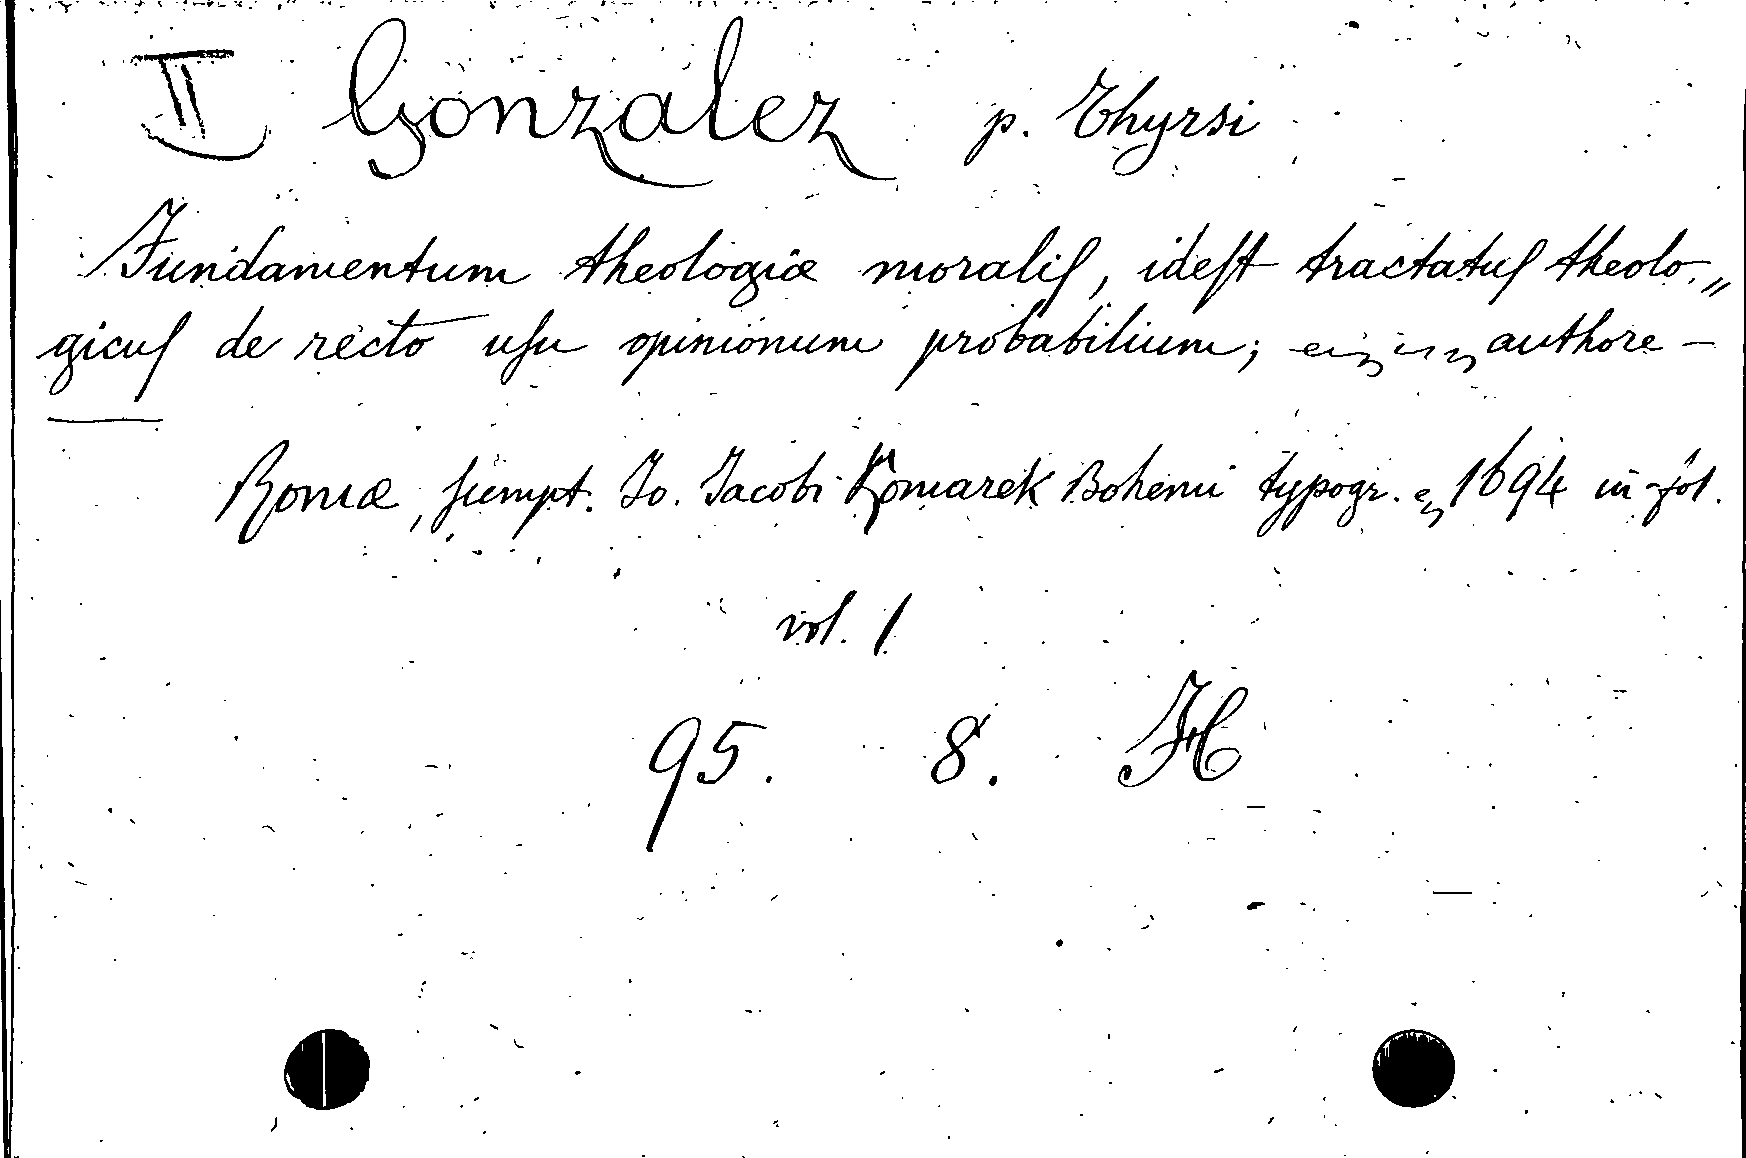 II Gonzalez p. Thyrsi
Fundamentum theologiæ moraliſ, ideſt tractatuſ theolo„
gicuſ de recto uſu opinionum probabilium; authore —
Romæ, ſumpt. Jo. Jacobi Komarek Bohemi typogr. 1694 in fol.
vol. 1
95. 8. H